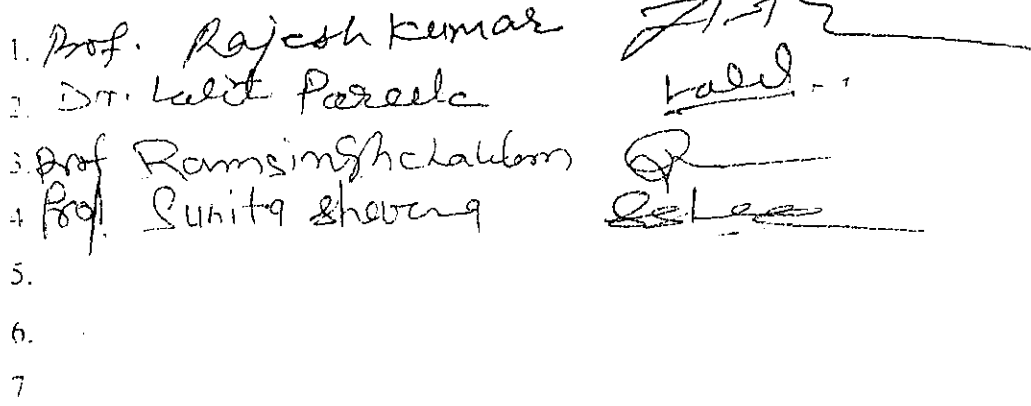 1. Prof. Rajesh Kumar
2. Dr. Lalit Pareek Lalit..
3. Prof Ramsingh
4 Prof. Sunita
5.
6.
7